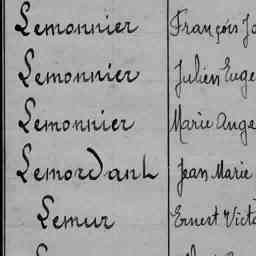 Lemonnier François Jo
Lemonnier Julien Euge
Lemonnier Marie Ange
Lemordant Jean Marie
Lemur Ernest Victo